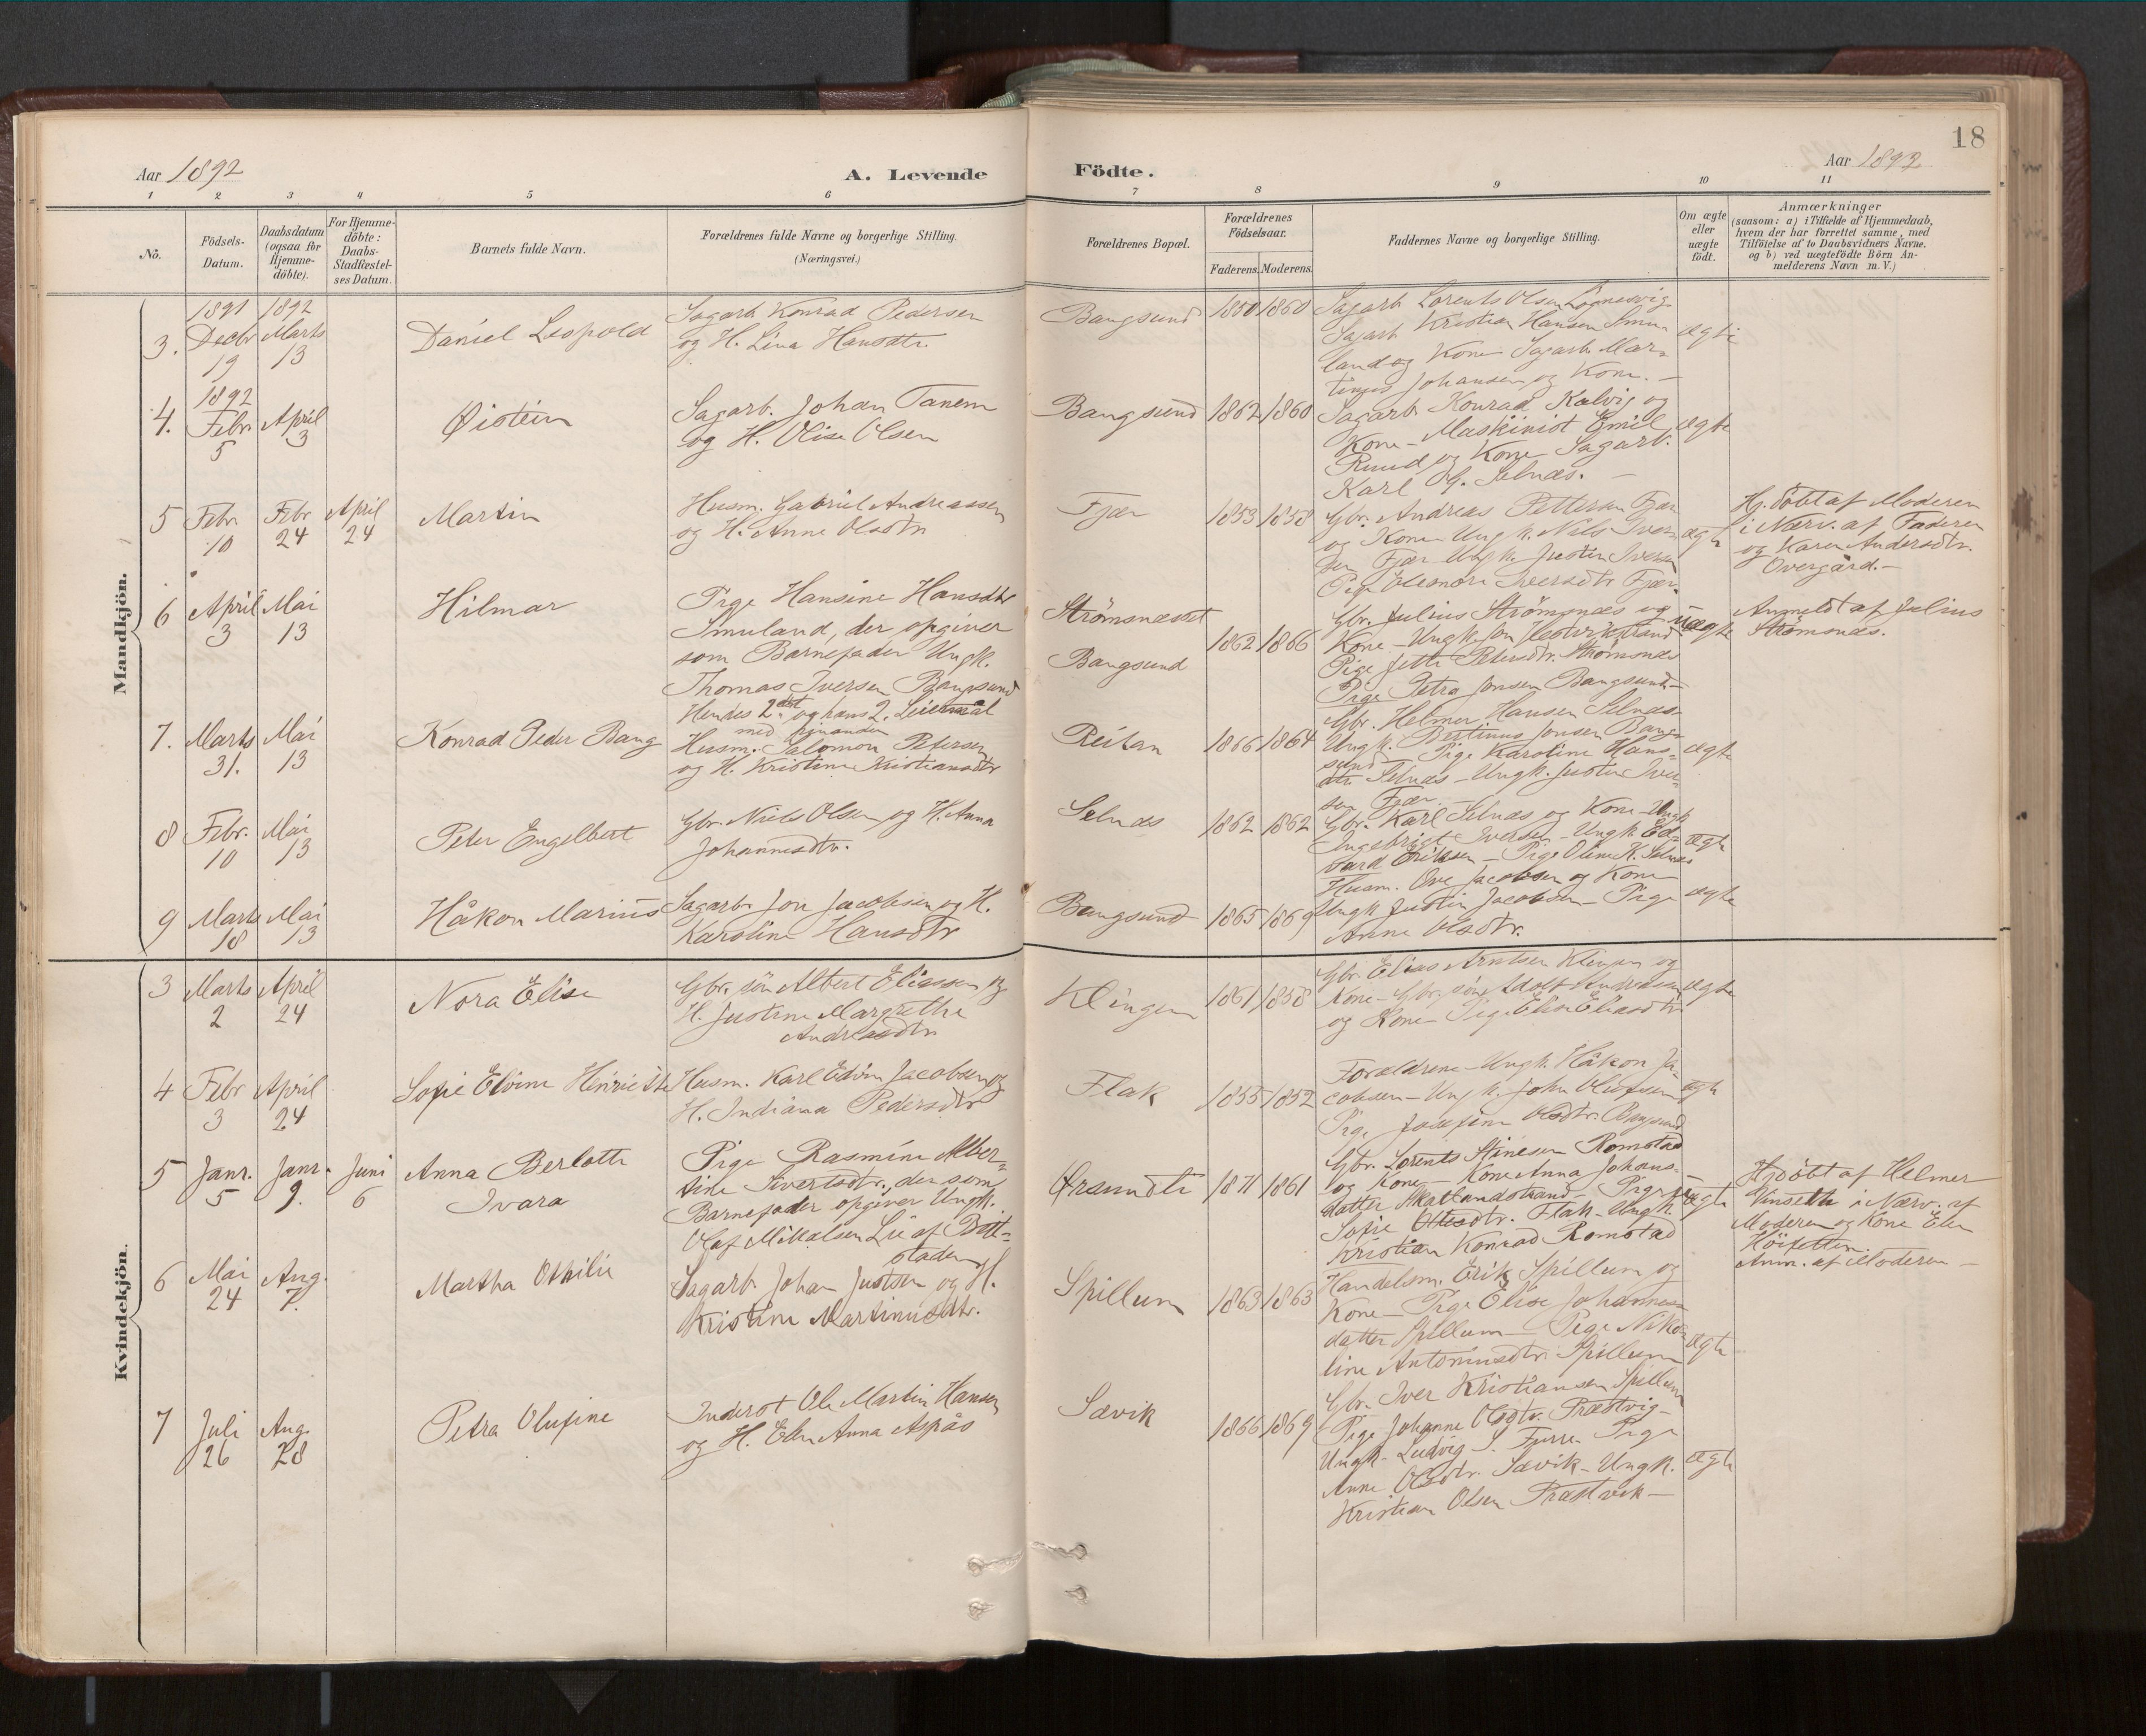 18
Aar 1892
A. Levende
Födte.
Aar 1892
1 2 3 4 5 6 7 8 9 10 11
No.
Födsels-
Datum.
Daabsdatum
(ogsaa for
Hjemme-
döbte).
For Hjemme-
döbte:
Daabs-
Stadfæstel-
ses Datum.
Barnets fulde Navn.
Forældrenes fulde Navne og borgerlige Stilling.
(Næringsvei.)
Forældrenes Bopæl.
Forældrenes
Födselsaar.
Faderens. Moderens.
Faddernes Navne og borgerlige Stilling.
Om ægte
eller
uægte
födt.
Anmærkninger
(saasom: a) i Tilfælde af Hjemmedaab,
hvem der har forrettet samme, med
Tilföielse af to Daabsvidners Navne.
og b) ved uægtefödte Börn An-
melderens Navn m. V.)
Mandkjön.
3.
1891
Decbr
19
1892
Marts
13
Daniel Leopold
Sagarb. Konrad Pedersen
og H. Lina Hansdtr.
Bangsund
1860 1860
Sagarb Lorents Olsen
Sagarb Kristian Hansen Smu-
land og Kone Sagarb. Mar-
tinus Johansen og Kone. –
ægte
4.
1892
Febr.
5
April
3
Øistein
Sagarb. Johan Tanem
og H. Olise Olsen
Bangsund
1862 1860
Sagarb. Konrad Kalvig og
Kone – Maskinist Emil
Ruud og Kone Sagarb.
Karl O. Selnæs. –
ægte
5
Febr.
10
Febr
24
April
24
Martin
Husm. Gabriel Andreassen
og H. Anne Olsdtr
Fjær
1853 1858
Gbr. Andreas Pettersen Fjær
og Kone Ungk. Nils Iver-
sen Fjær Ungk. Justin Iversen
Pige Eleonore Iversdtr Fjær.
ægte
Hj. döbt af Moderen
i Nærv. af Faderen
og Karen Andersdtr.
Overgård. –
6
April
3
Mai
13
Hilmar
Pige Hansine Hansdtr
Smuland, der opgiver
som Barnefader Ungk.
Thomas Iversen Bangsund
Hendes 2det og hans 2. Leiermål
med hinanden
Strömsnæsset
Bangsund
1862 1866
Gbr. Julius Strömsnæs og
Kone – Ungk. Jon Hestvikstrand
Pige Jette Petersdtr. Strömsnæs
Pige Petra Jonsen Bangsund –
uægte
Anmeldt af Julius
Strömsnæs.
7.
Marts
31.
Mai
13
Konrad Peder Bang
Husm. Salomon Petersen
og H. Kristine Kristiansdtr
Reitan
1866 1864
Gbr. Helmer Hansen Selnæs
Ungk. Bertinus Jonsen Bang-
sund – Pige Karoline Hans-
dtr Selnæs – Ungk. Justin Iver-
sen Fjær.
ægte
8
Febr.
10
Mai
13
Peter Engelbert
Gbr. Niels Olsen og H. Anna
Johannesdtr.
Selnæs
1862 1862
Gbr. Karl Selnæs og Kone – Ungk
Ingebrigt Iversen – Ungk. Ed-
vard Eriksen – Pige Oline K. Selnæs
ægte
9
Marts
18
Mai
13
Håkon Marius
Sagarb. Jon Jacobsen og H.
Karoline Hansdtr
Bangsund
1865 1869
Husm. Ove Jacobsen og Kone
Ungk Justin Jacobsen – Pige
Anne Olsdtr.
ægte
Kvindekjön.
3
Marts
2
April
24
Nora Elise
Gbr. sön Albert Eliassen og
H. Justine Margrethe
Andreasdtr
Klingen
1861 1858
Gbr. Elias Arntsen Klingen og
Kone – Gbr. sön Adolf Andreassen
og Kone Pige Elise Eliasdtr
ægte
4
Febr
3
April
24
Sofie Elvine Henriette
Husm. Karl Edvin Jacobsen og
H. Indiana Pedersdtr
Flak
1855 1852
Forældrene – Ungk. Håkon Ja-
cobsen – Ungk. John Olufsen
Pige Josefine Olsdtr. Bangsund
ægte
5
Janr.
5
Janr.
9.
Juni
6
Anna Berlotte
Ivara
Pige Rasmine Alber-
tine Sivertsdtr. der som
Barnefader opgiver Ungk.
Olaf Mikalsen Lie af Beit-
staden
Ørsundte
1871 1861
Gbr. Lorents Stinesen Romstad
og Kone – Kone Anna Johans-
datter Skatlandstrand – Pige
Sofie Olsdtr. Flak – Ungk.
Kristian Konrad Romstad
uægte
Hjdöbt af Helmer
Vinsette i Nærv. af
Moderen og Kone Elen
Anm. af Moderen –
6
Mai
24
Aug.
7.
Martha Othilie
Sagarb. Johan Justsen og H.
Kristine Martinusdtr.
Spillum
1863 1863
Handelsm. Erik Spillum og
Kone – Pige Elise Johannes-
datter Spillum – Pige Niko-
line Antoniusdtr. Spillum
ægte
7
Juli
26
Aug.
28
Petra Olufine
Inderst Ole Martin Hansen
og H. Elen Anna Aspås
Sævik
1866 1869
Gbr. Iver Kristiansen Spillum
Pige Johanne Olsdtr. Præstvig –
Ungk. Ludvig S. Furre Pige
Anne Olsdtr. Sævik – Ungk.
Kristian Olsen Præstvik –
ægte